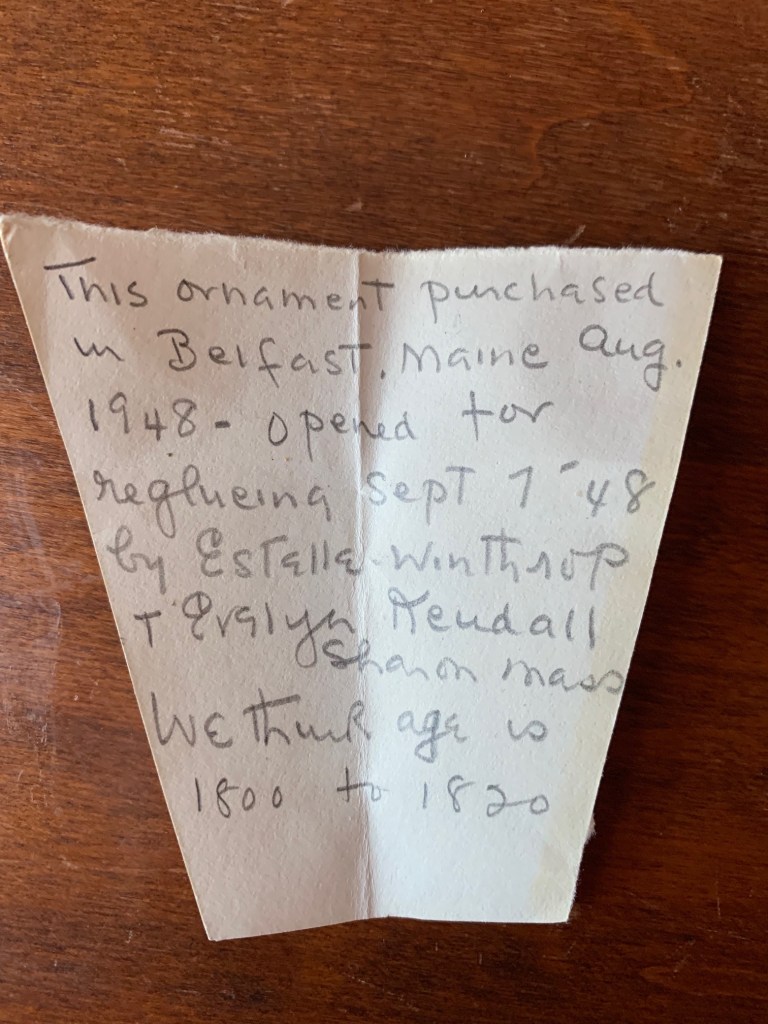 This ornament purchased
in Belfast, Maine Aug.
1948 - opened for
reglueing Sept 7 - 48
by Estelle Winthrop
+ Evalyn Kendall
Sharon Mass
We think age is
1800 to 1820